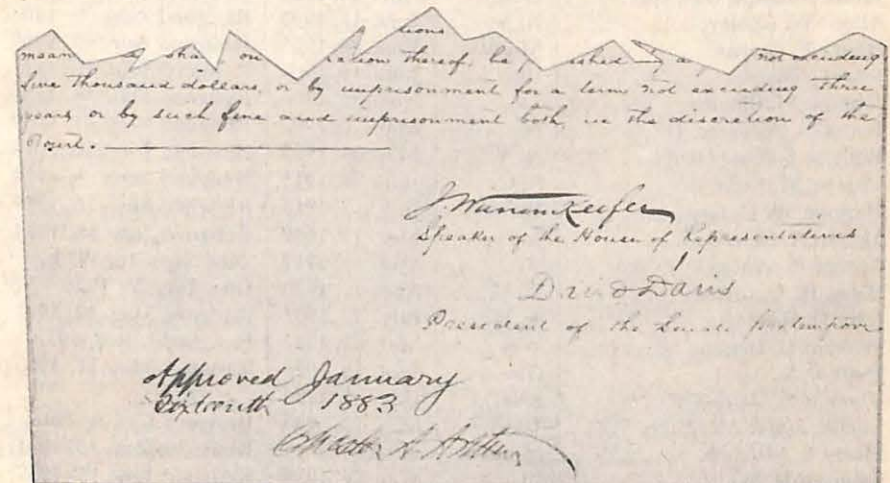 tions
mean shall on ration thereof, be ished by a not exceeding
five thousand dollars, or by imprisonment for a term not exceeding three
years, or by such fine and imprisonment both, in the discretion of the
Court.
J Warren Keifer
Speaker of the House of Representatives
David Davis
President of the Senate Pro tempore.
Approved January
Sixteenth 1883
Chester A. Arthur